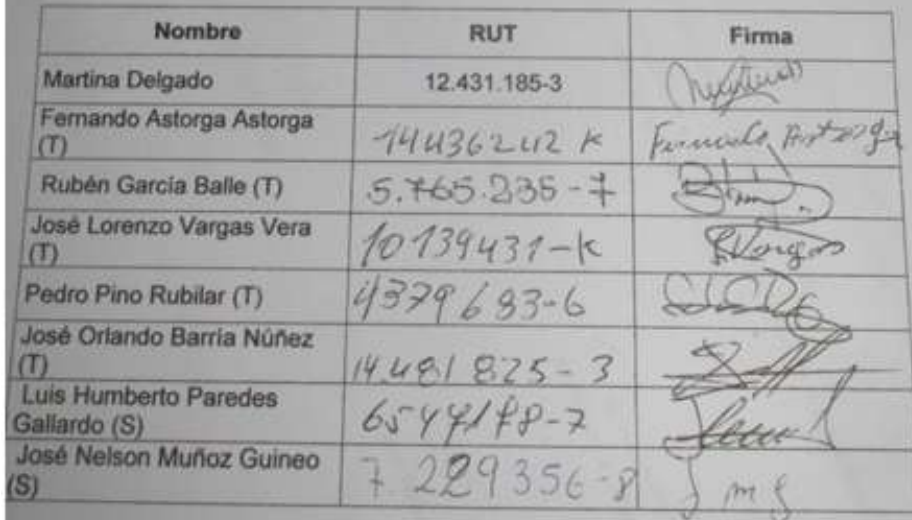 Nombre RUT Firma
Martina Delgado 12.431.185-3
Fernando Astorga Astorga
(T) 14436242 K Fernando Astorga
Rubén García Balle (T) 5.765.235-7
José Lorenzo Vargas Vera
(T) 10139431-K Vargas
Pedro Pino Rubilar (T) 4379683-6
José Orlando Barría Núñez
(T) 14.481 825-3
Luis Humberto Paredes
Gallardo (S)
José Nelson Muñoz Guineo
(S) 7.229356-8 J m g